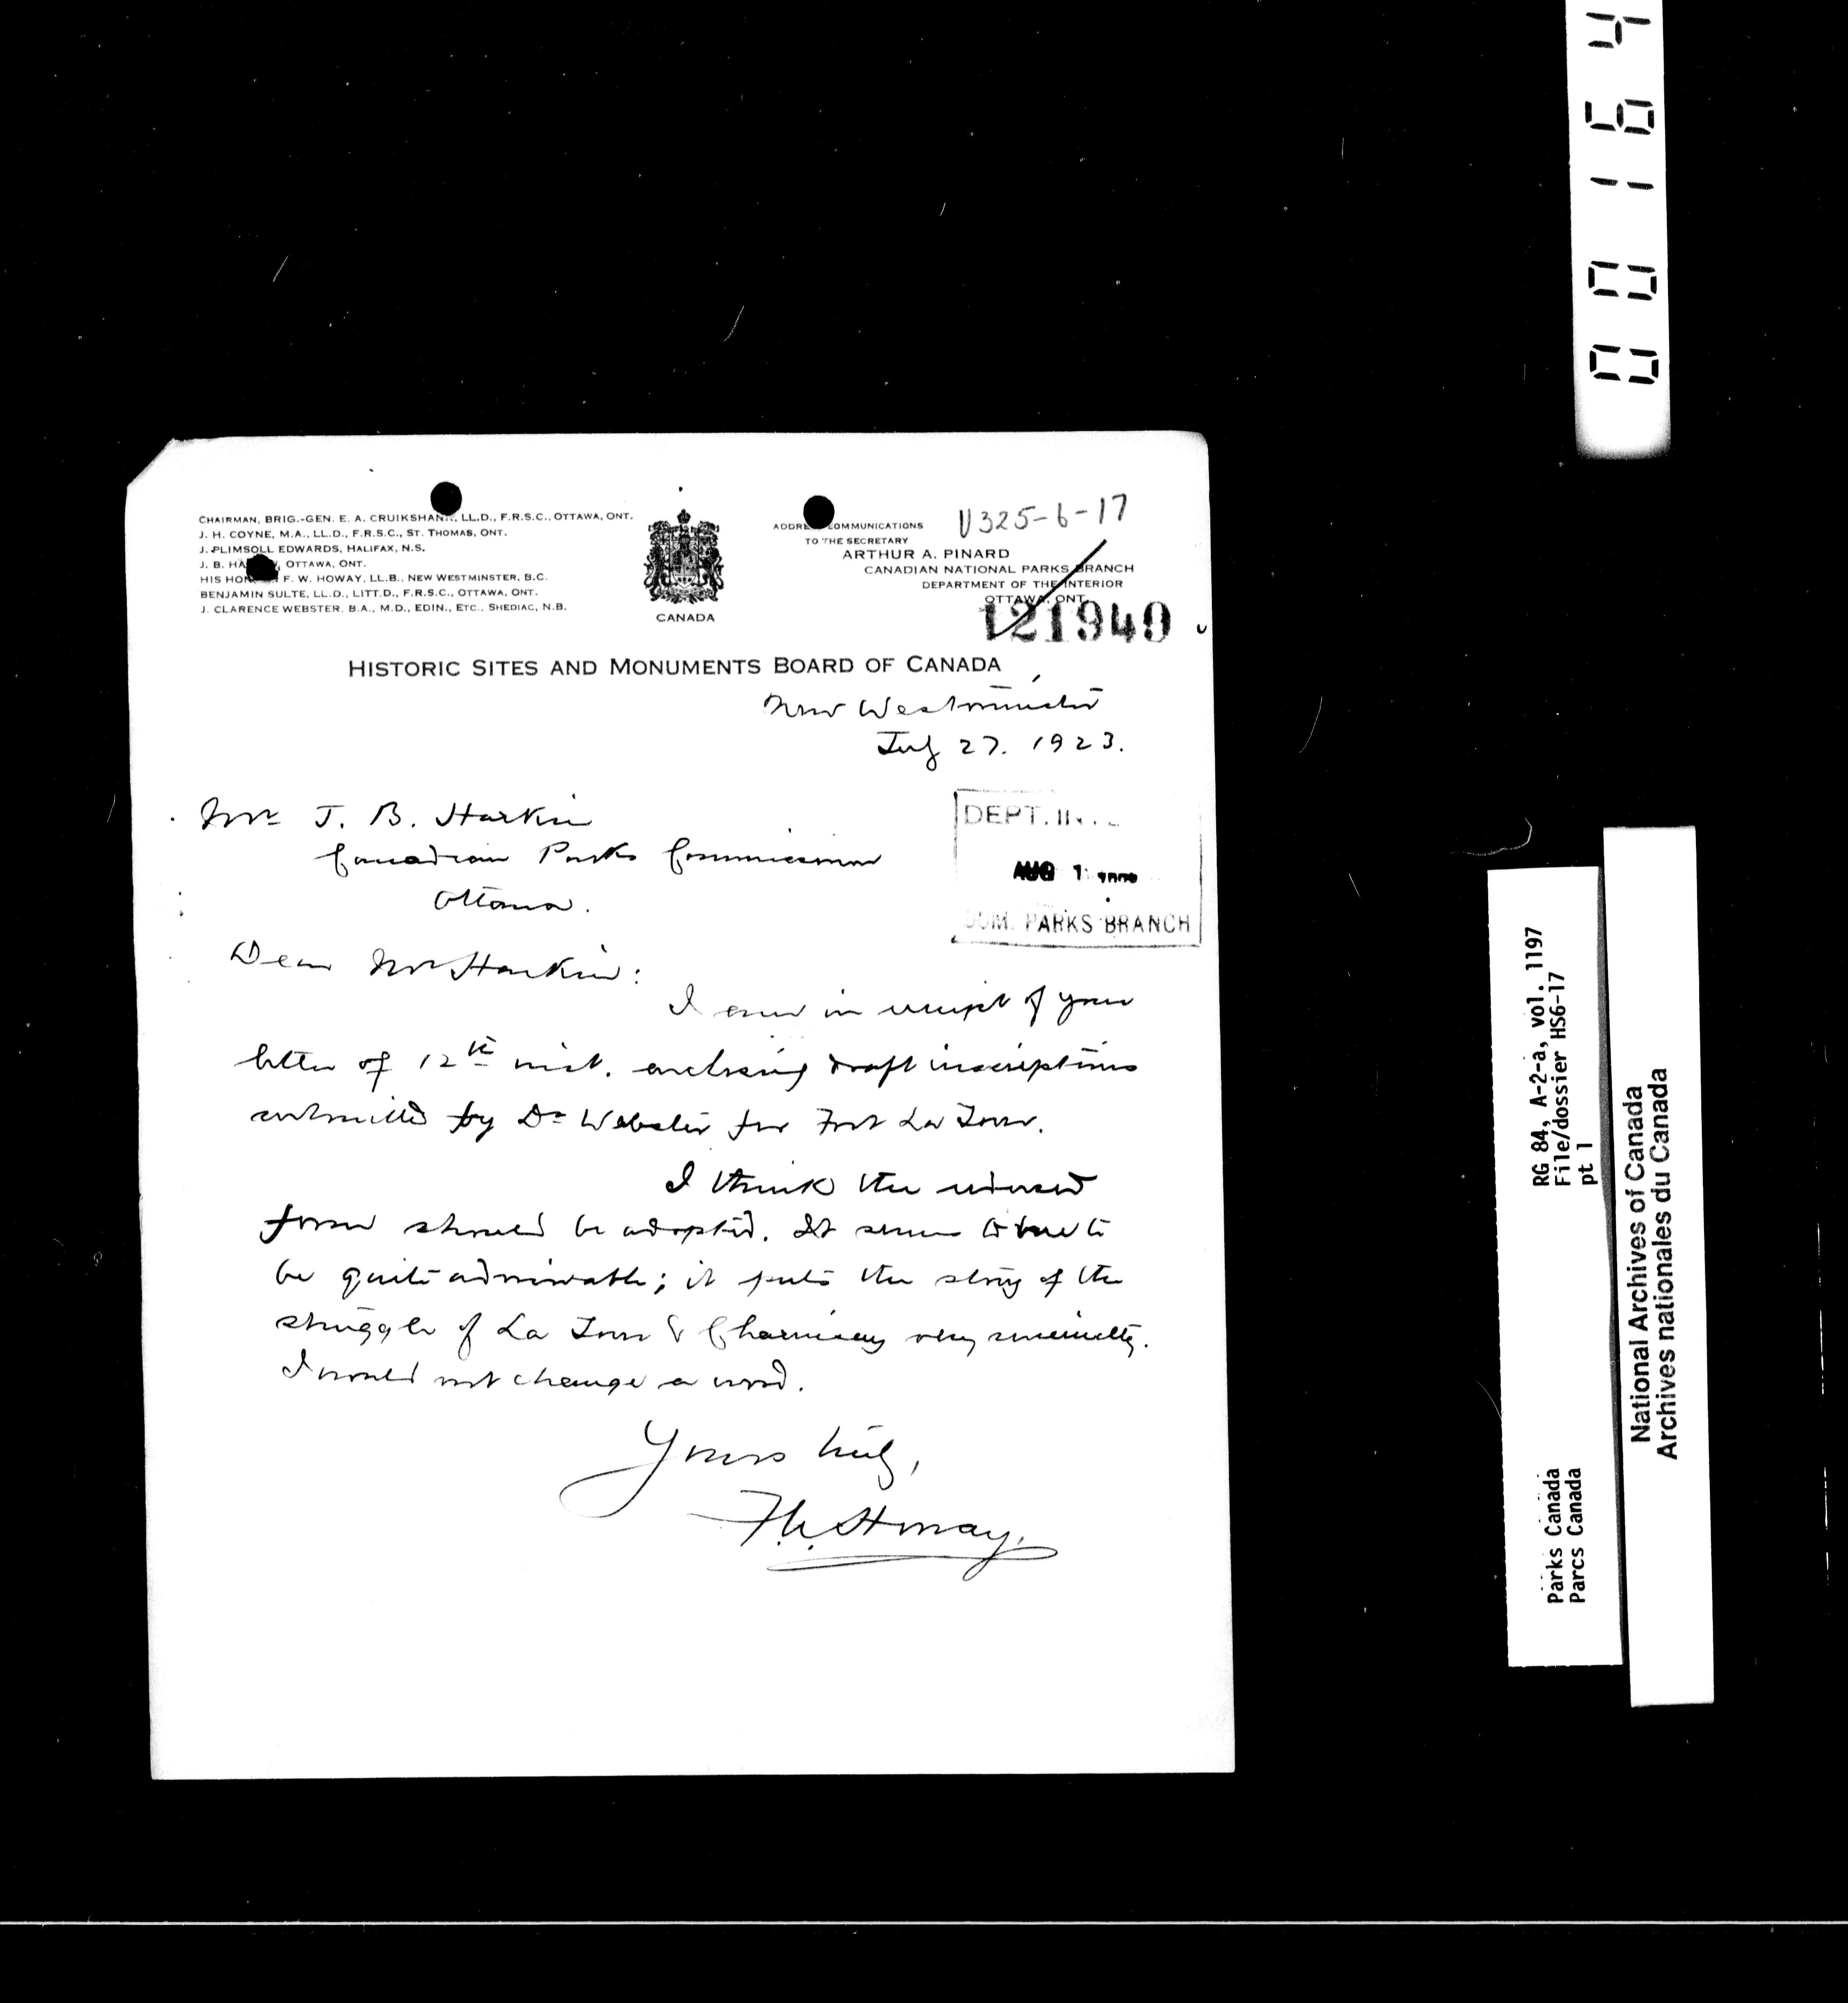 CHAIRMAN, BRIG.-GEN. E. A. CRUIKSHANK, LL.D., F.R.S.C., OTTAWA, ONT.
J. H. COYNE, M.A., LL.D., F.R.S.C., ST. THOMAS, ONT.
J. PLIMSOLL EDWARDS, HALIFAX, N.S.
J. B. HA , OTTAWA, ONT.
HIS HON F. W. HOWAY, LL.B., NEW WESTMINSTER, B.C.
BENJAMIN SULTE, LL.D., LITT.D., F.R.S.C., OTTAWA, ONT.
J. CLARENCE WEBSTER, B.A., M.D., EDIN., ETC., SHEDIAC, N.B.
CANADA
U325-6-17
ADDRE COMMUNICATIONS
TO THE SECRETARY
ARTHUR A. PINARD
CANADIAN NATIONAL PARKS BRANCH
DEPARTMENT OF THE INTERIOR
OTTAWA, ONT.
121949
HISTORIC SITES AND MONUMENTS BOARD OF CANADA
New Westminster
July 27. 1923.
Mr J. B. Harkin
Canadian Parks Commissioner
Ottawa.
DEPT.
AUG 1
DOM. PARKS BRANCH
Dear Mr Harkin:
I am in receipt of your
letter of 12th inst. enclosing draft inscriptions
submitted by Dr Webster for Fort La Tour.
I think the revised
form should be adopted. It seems to me to
be quite admirable; it puts the story of the
struggle of La Tour & Charnisay very succinctly.
I would not change a word.
Yours truly,
F.W. Howay.
00164
RG 84, A-2-a, vol. 1197
File/dossier HS6-17
pt 1
Parks Canada
Parcs Canada
National Archives of Canada
Archives nationales du Canada